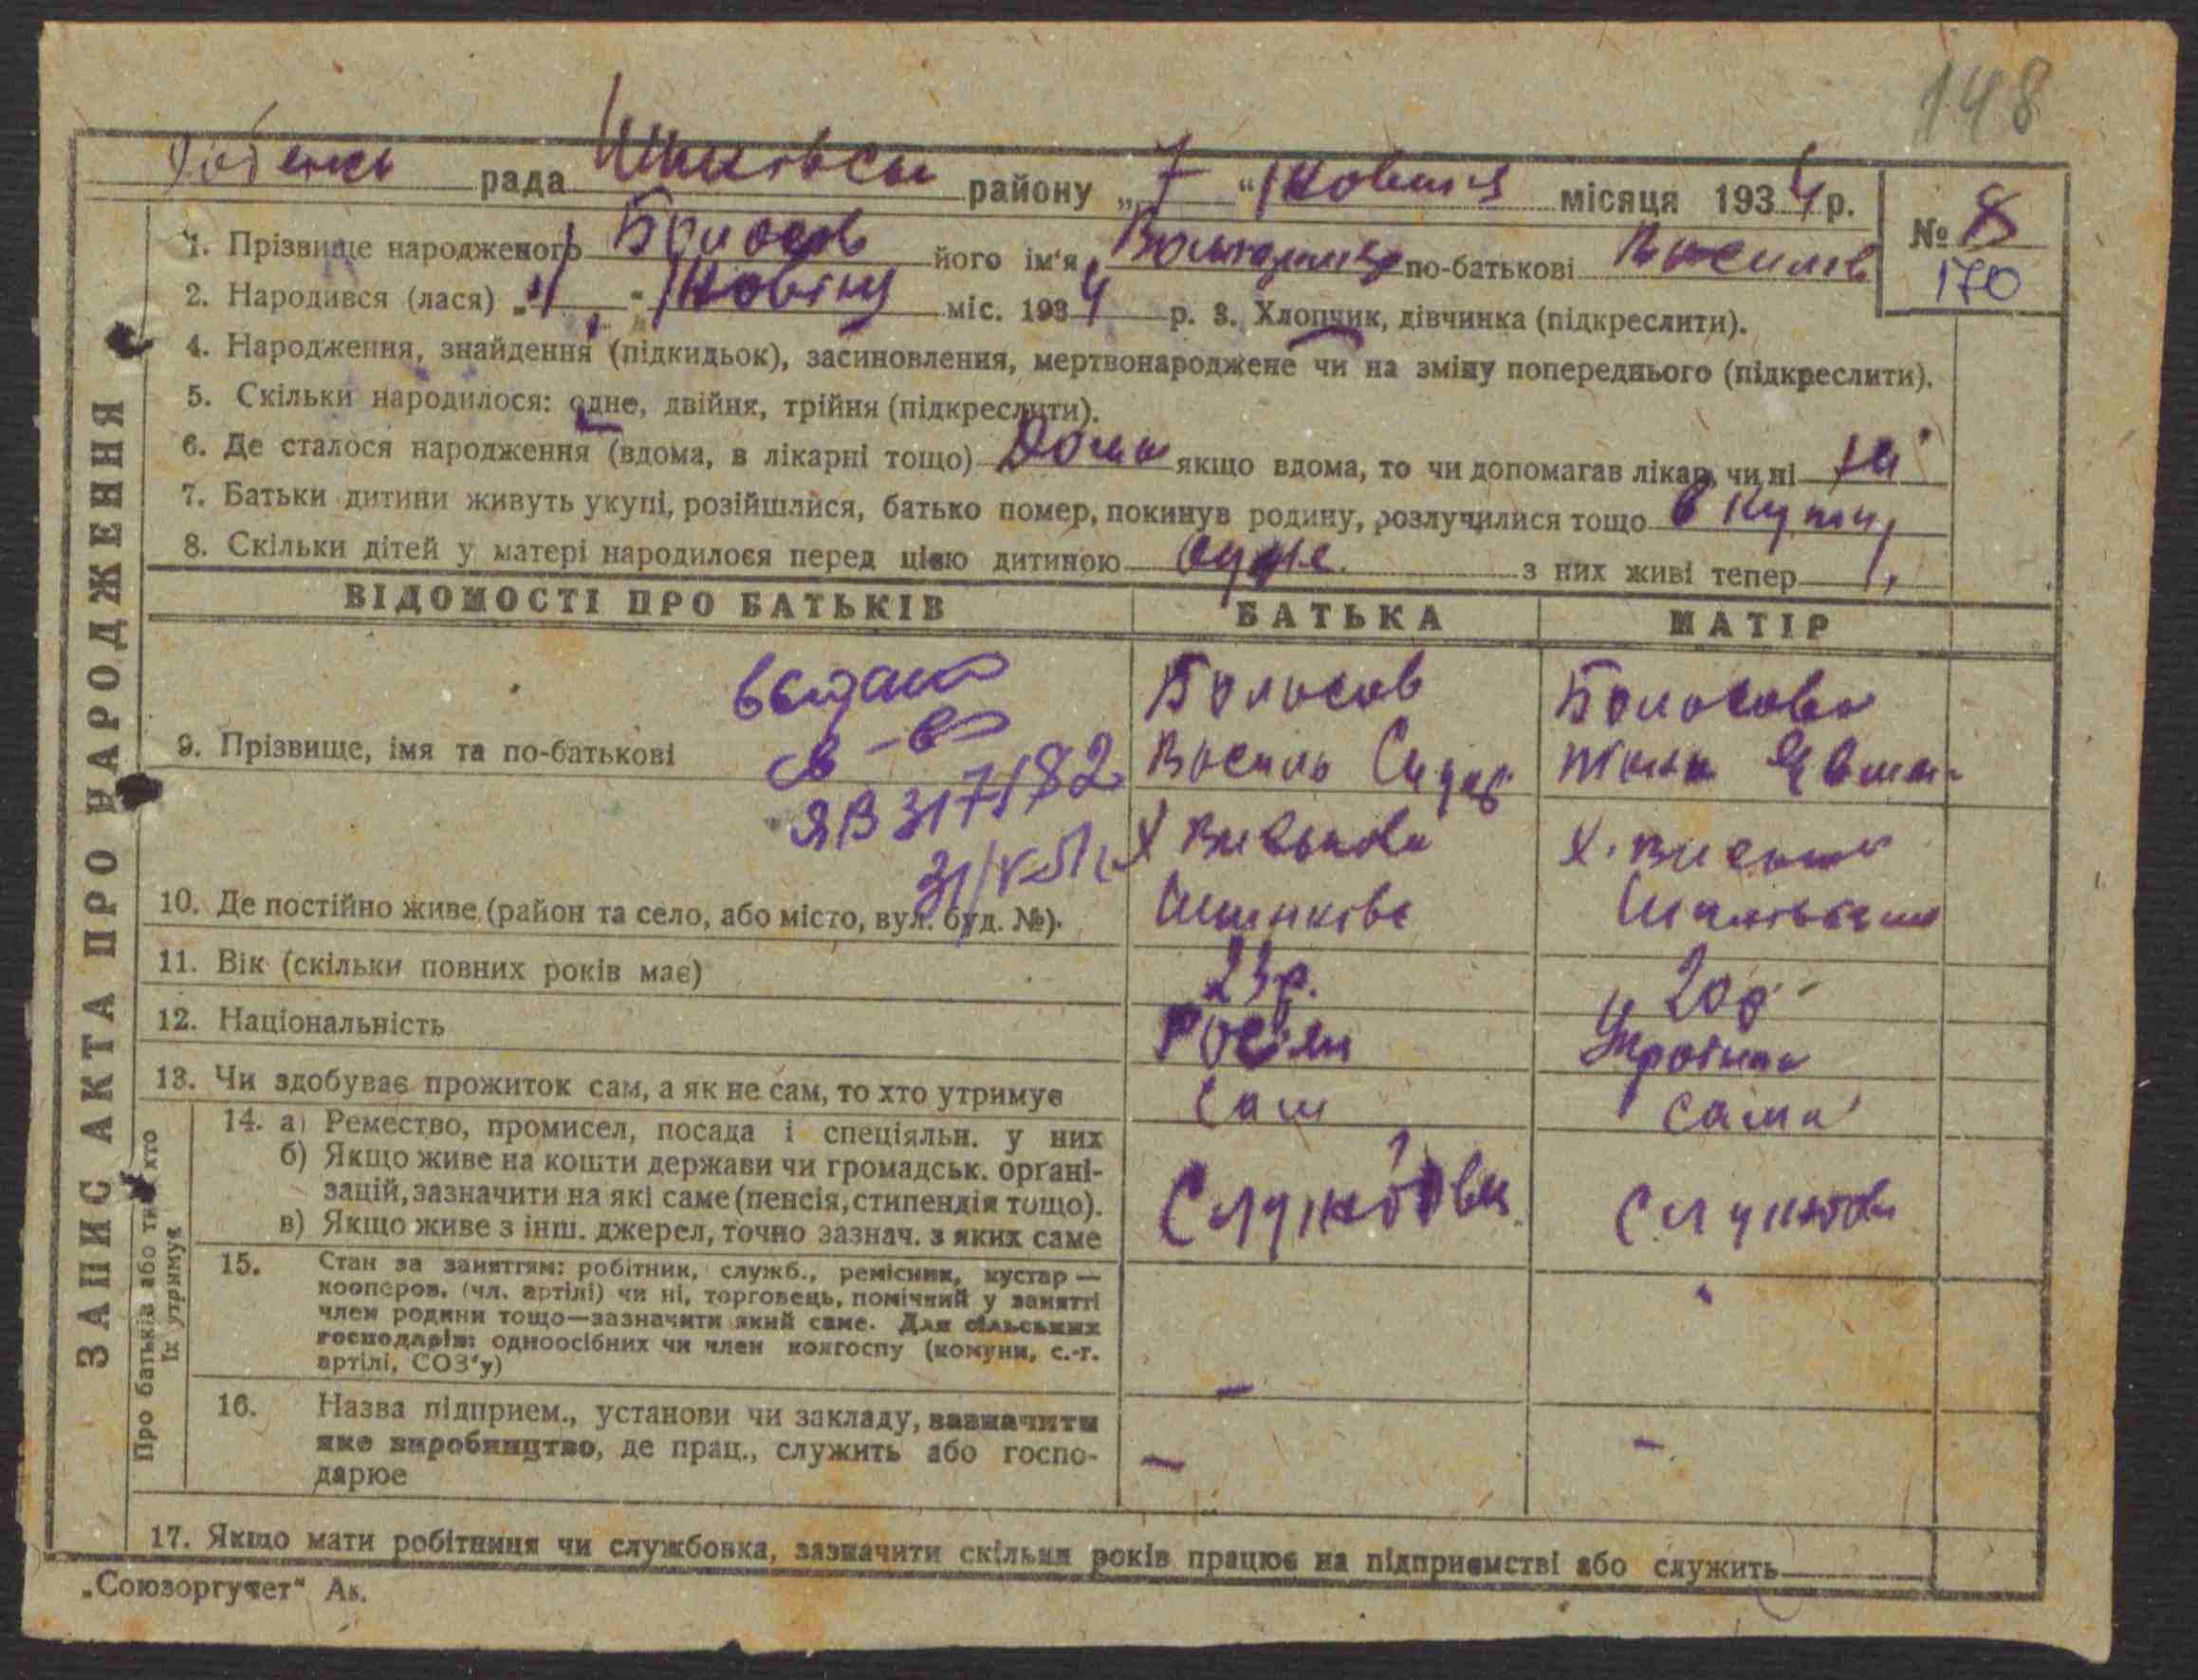 148
рада району „7“ Жовтня місяця 1934 р.
№ 8
170
1. Прізвище народженого його ім'я Володимир по-батькові Василів
2. Народився (лася) „ “ Жовтня міс. 1934 р. 3. Хлопчик, дівчинка (підкреслити).
4. Народження, знайдення (підкидьок), засиновлення, мертвонароджене чи на зміну попереднього (підкреслити).
5. Скільки народилося: одне, двійня, трійня (підкреслити).
6. Де сталося народження (вдома, в лікарні тощо) Дома якщо вдома, то чи допомагав лікар, чи ні ні
7. Батьки дитини живуть укупі, розійшлися, батько помер, покинув родину, розлучилися тощо в купи,
8. Скільки дітей у матері народилося перед цією дитиною одне з них живі тепер 1,
ЗАПИС АКТА ПРО НАРОДЖЕННЯ
ВІДОМОСТІ ПРО БАТЬКІВ БАТЬКА МАТІР
9. Прізвище, імя та по-батькові
Василь Сидор
выдано
св-во
ЯВ 317182
10. Де постійно живе (район та село, або місто, вул. буд. №).
11. Вік (скільки повних років має) 23р. 20р
12. Національність Росіян
13. Чи здобуває прожиток сам, а як не сам, то хто утримує сам сама
Про батьків або тих хто
їх утримує
14. а) Ремество, промисел, посада і спеціяльн. у них
б) Якщо живе на кошти держави чи громадськ. орґані-
зацій, зазначити на які саме (пенсія, стипендія тощо).
в) Якщо живе з інш. джерел, точно зазнач. з яких саме
15. Стан за заняттям: робітник, служб., ремісник, кустар —
кооперов. (чл. артілі) чи ні, торговець, помічний у занятті
член родини тощо—зазначити який саме. Для сільських
господарів: одноосібних чи член колгоспу (комуни, с.-г.
артілі, СОЗ'у)
16. Назва підприєм., установи чи закладу, зазначити
яке виробництво, де прац., служить або госпо-
дарює
17. Якщо мати робітниця чи службовка, зазначити скільки років працює на підприємстві або служить
„Союзоргучет“ Ак.